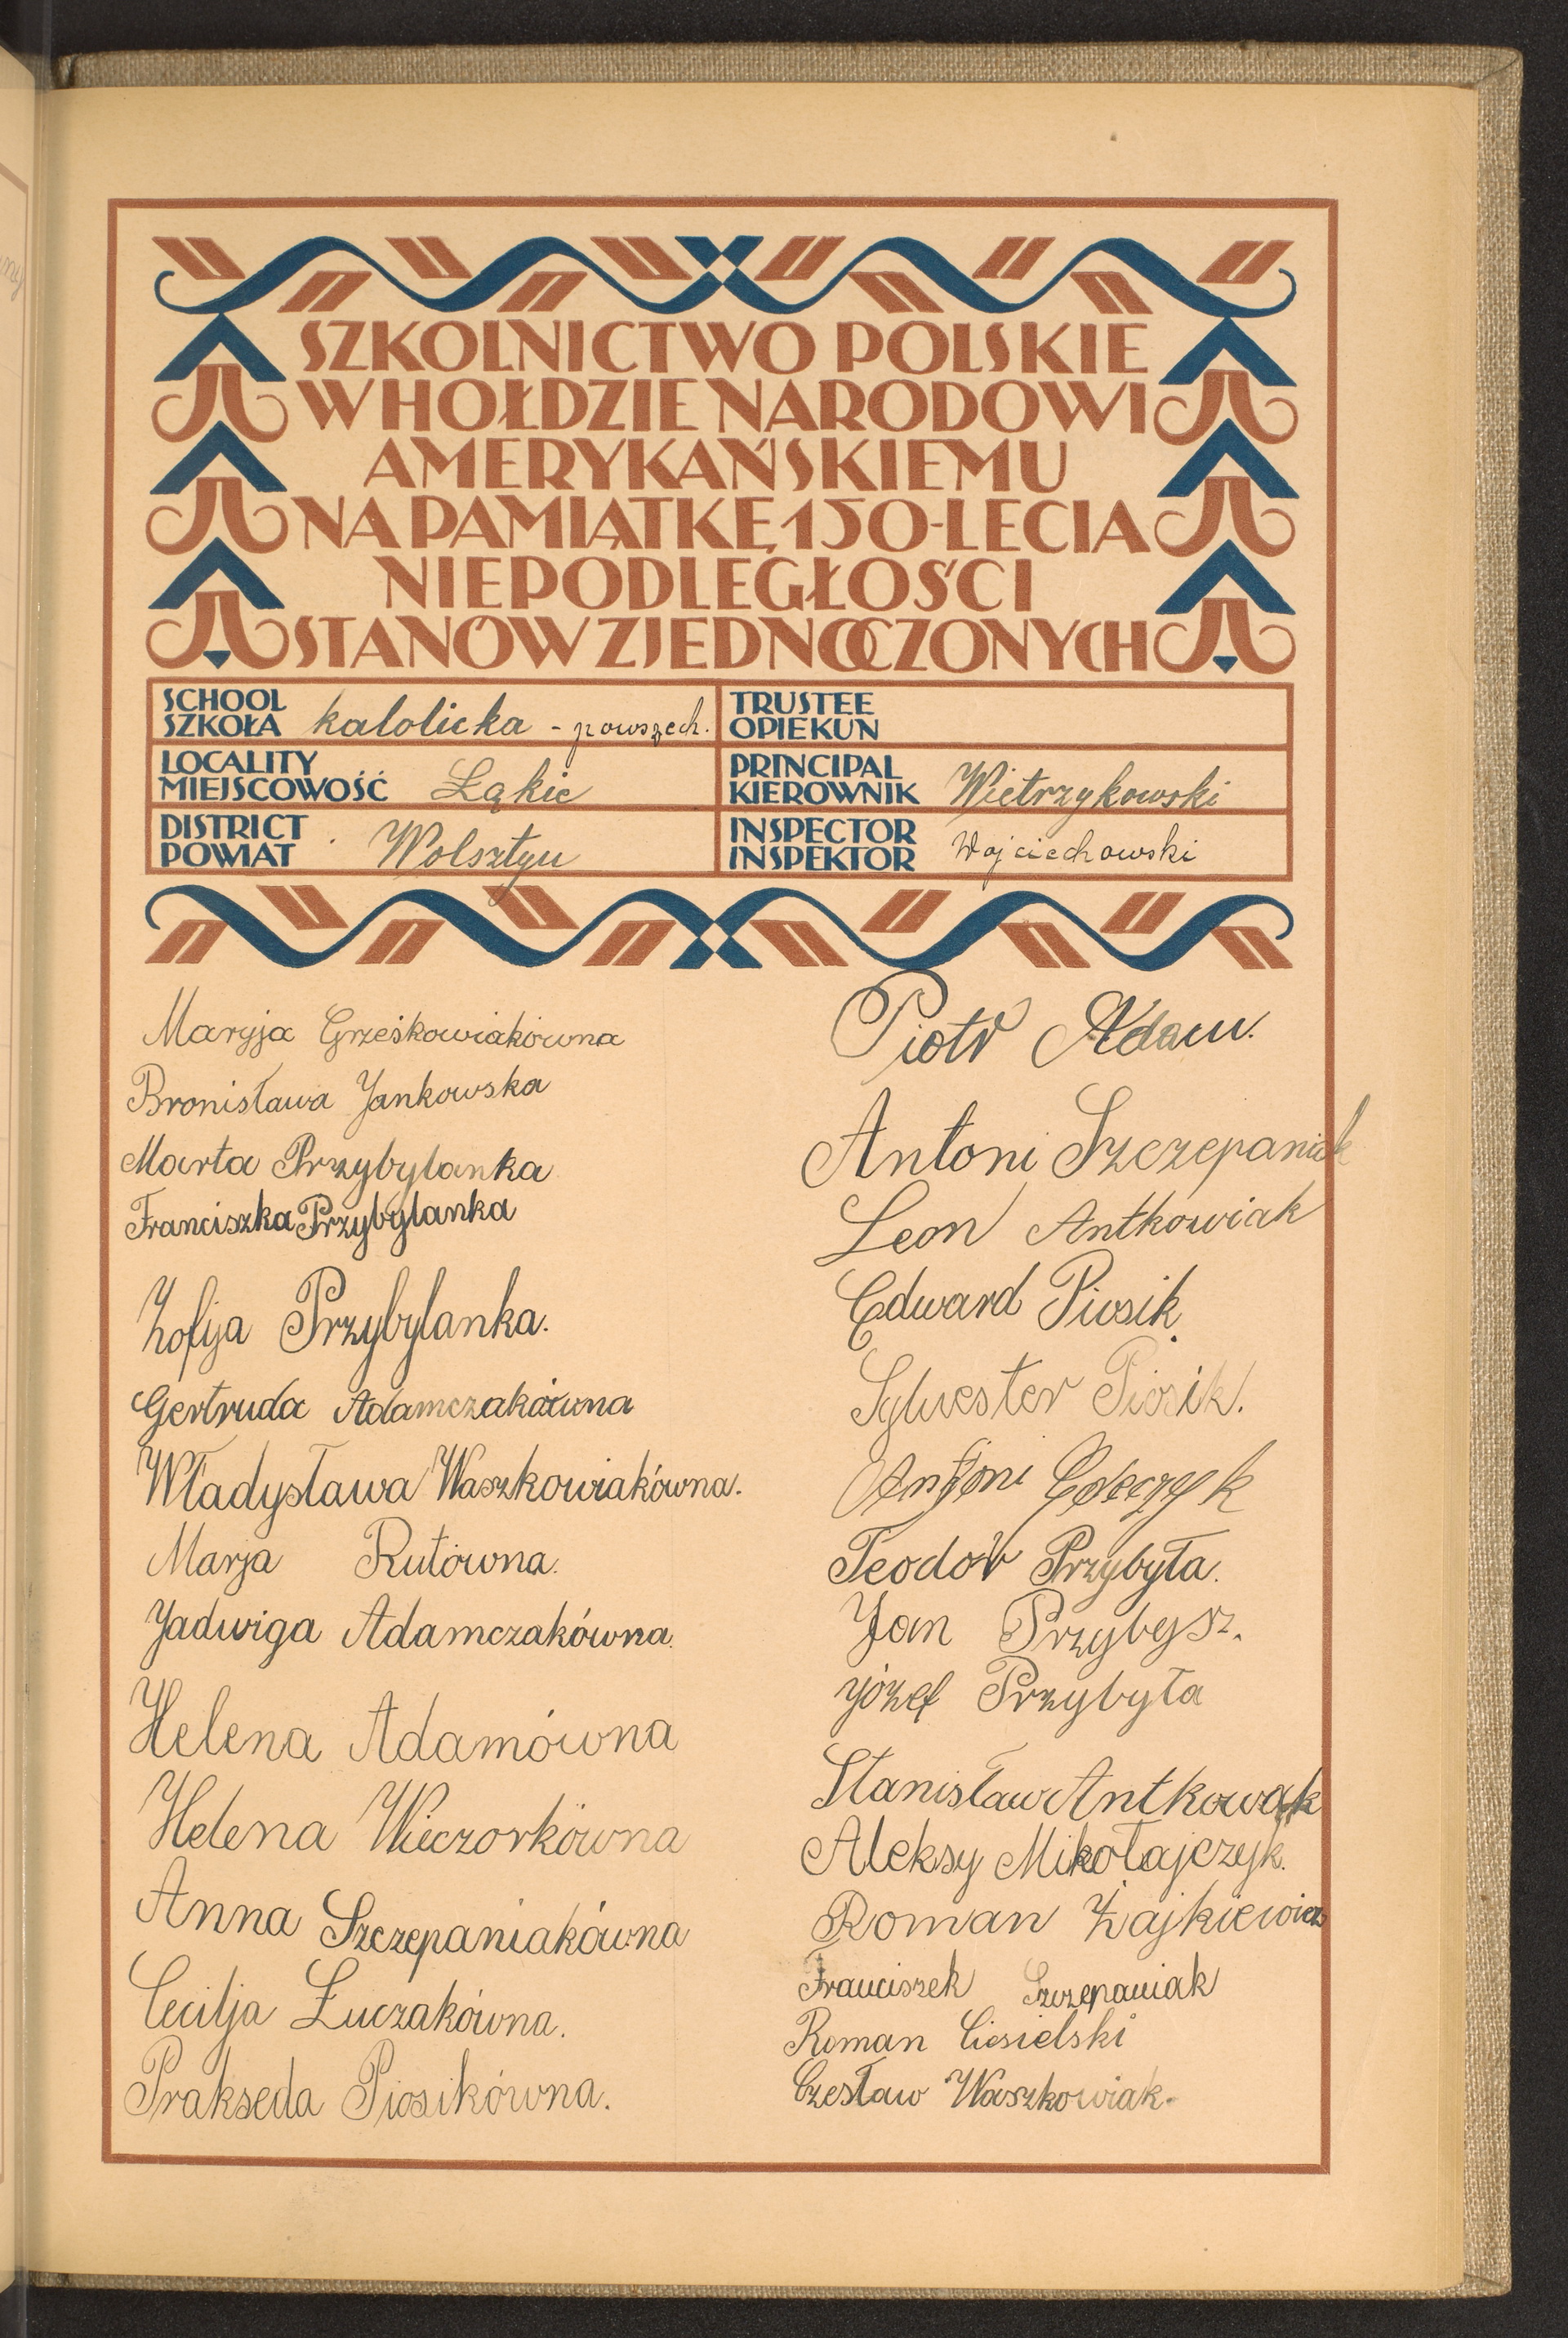 SZKOLNICTWO POLSKIE
W HOŁDZIE NARODOWI
AMERYKAŃSKIEMU
NA PAMIĄTKĘ 150-LECIA
NIEPODLEGŁOŚCI
STANÓW ZJEDNOCZONYCH
SCHOOL
SZKOŁA katolicka - powszech.
TRUSTEE
OPIEKUN
LOCALITY
MIEJSCOWOŚĆ Łąkie
PRINCIPAL
KIEROWNIK Wietrzykowski
DISTRICT
POWIAT Wolsztyn
INSPECTOR
INSPEKTOR Wojciechowski
Maryja Grześkowiakówna
Bronisława Jankowska
Marta Przybylanka
Franciszka Przybylanka
Zofija Przybylanka.
Gertruda Adamczakówna
Władysława Waszkowiakówna.
Marja Rutówna.
Jadwiga Adamczakówna.
Helena Adamówna
Helena Wieczorkówna
Anna Szczepaniakówna
Cecilja Łuczakówna.
Prakseda Piosikówna.
Piotr Adam.
Antoni Szczepaniak
Leon Antkowiak
Edward Piosik.
Sylwester Piosik.
Antoni
Teodor Przybyła.
Jan Przybysz.
Józef Przybyła
Stanisław Antkowak
Aleksy Mikołajczyk.
Roman Żajkiewicz
Franciszek Szczepaniak
Roman Ciesielski
Czesław Waszkowiak.